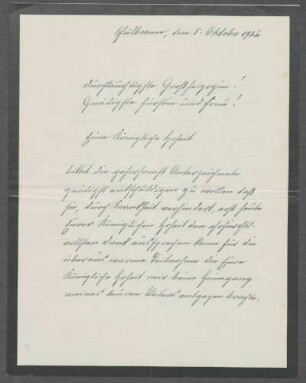 den 5. Oktober 1922
Durchlauchtigste Großherzogin!
Gnädigste Fürstin und Frau!
Eure Königliche Hoheit
bittet die gehorsamst Unterzeichnete
gnädigst entschuldigen zu wollen daß
sie, durch Krankheit verhindert, erst heute
Eurer Königlichen Hoheit den ehrfurcht-
vollsten Dank aussprechen kann für die
überaus warme Teilnahme die Eure
Königliche Hoheit mir beim Heimgang
meines teuren Vaters entgegen brachte.